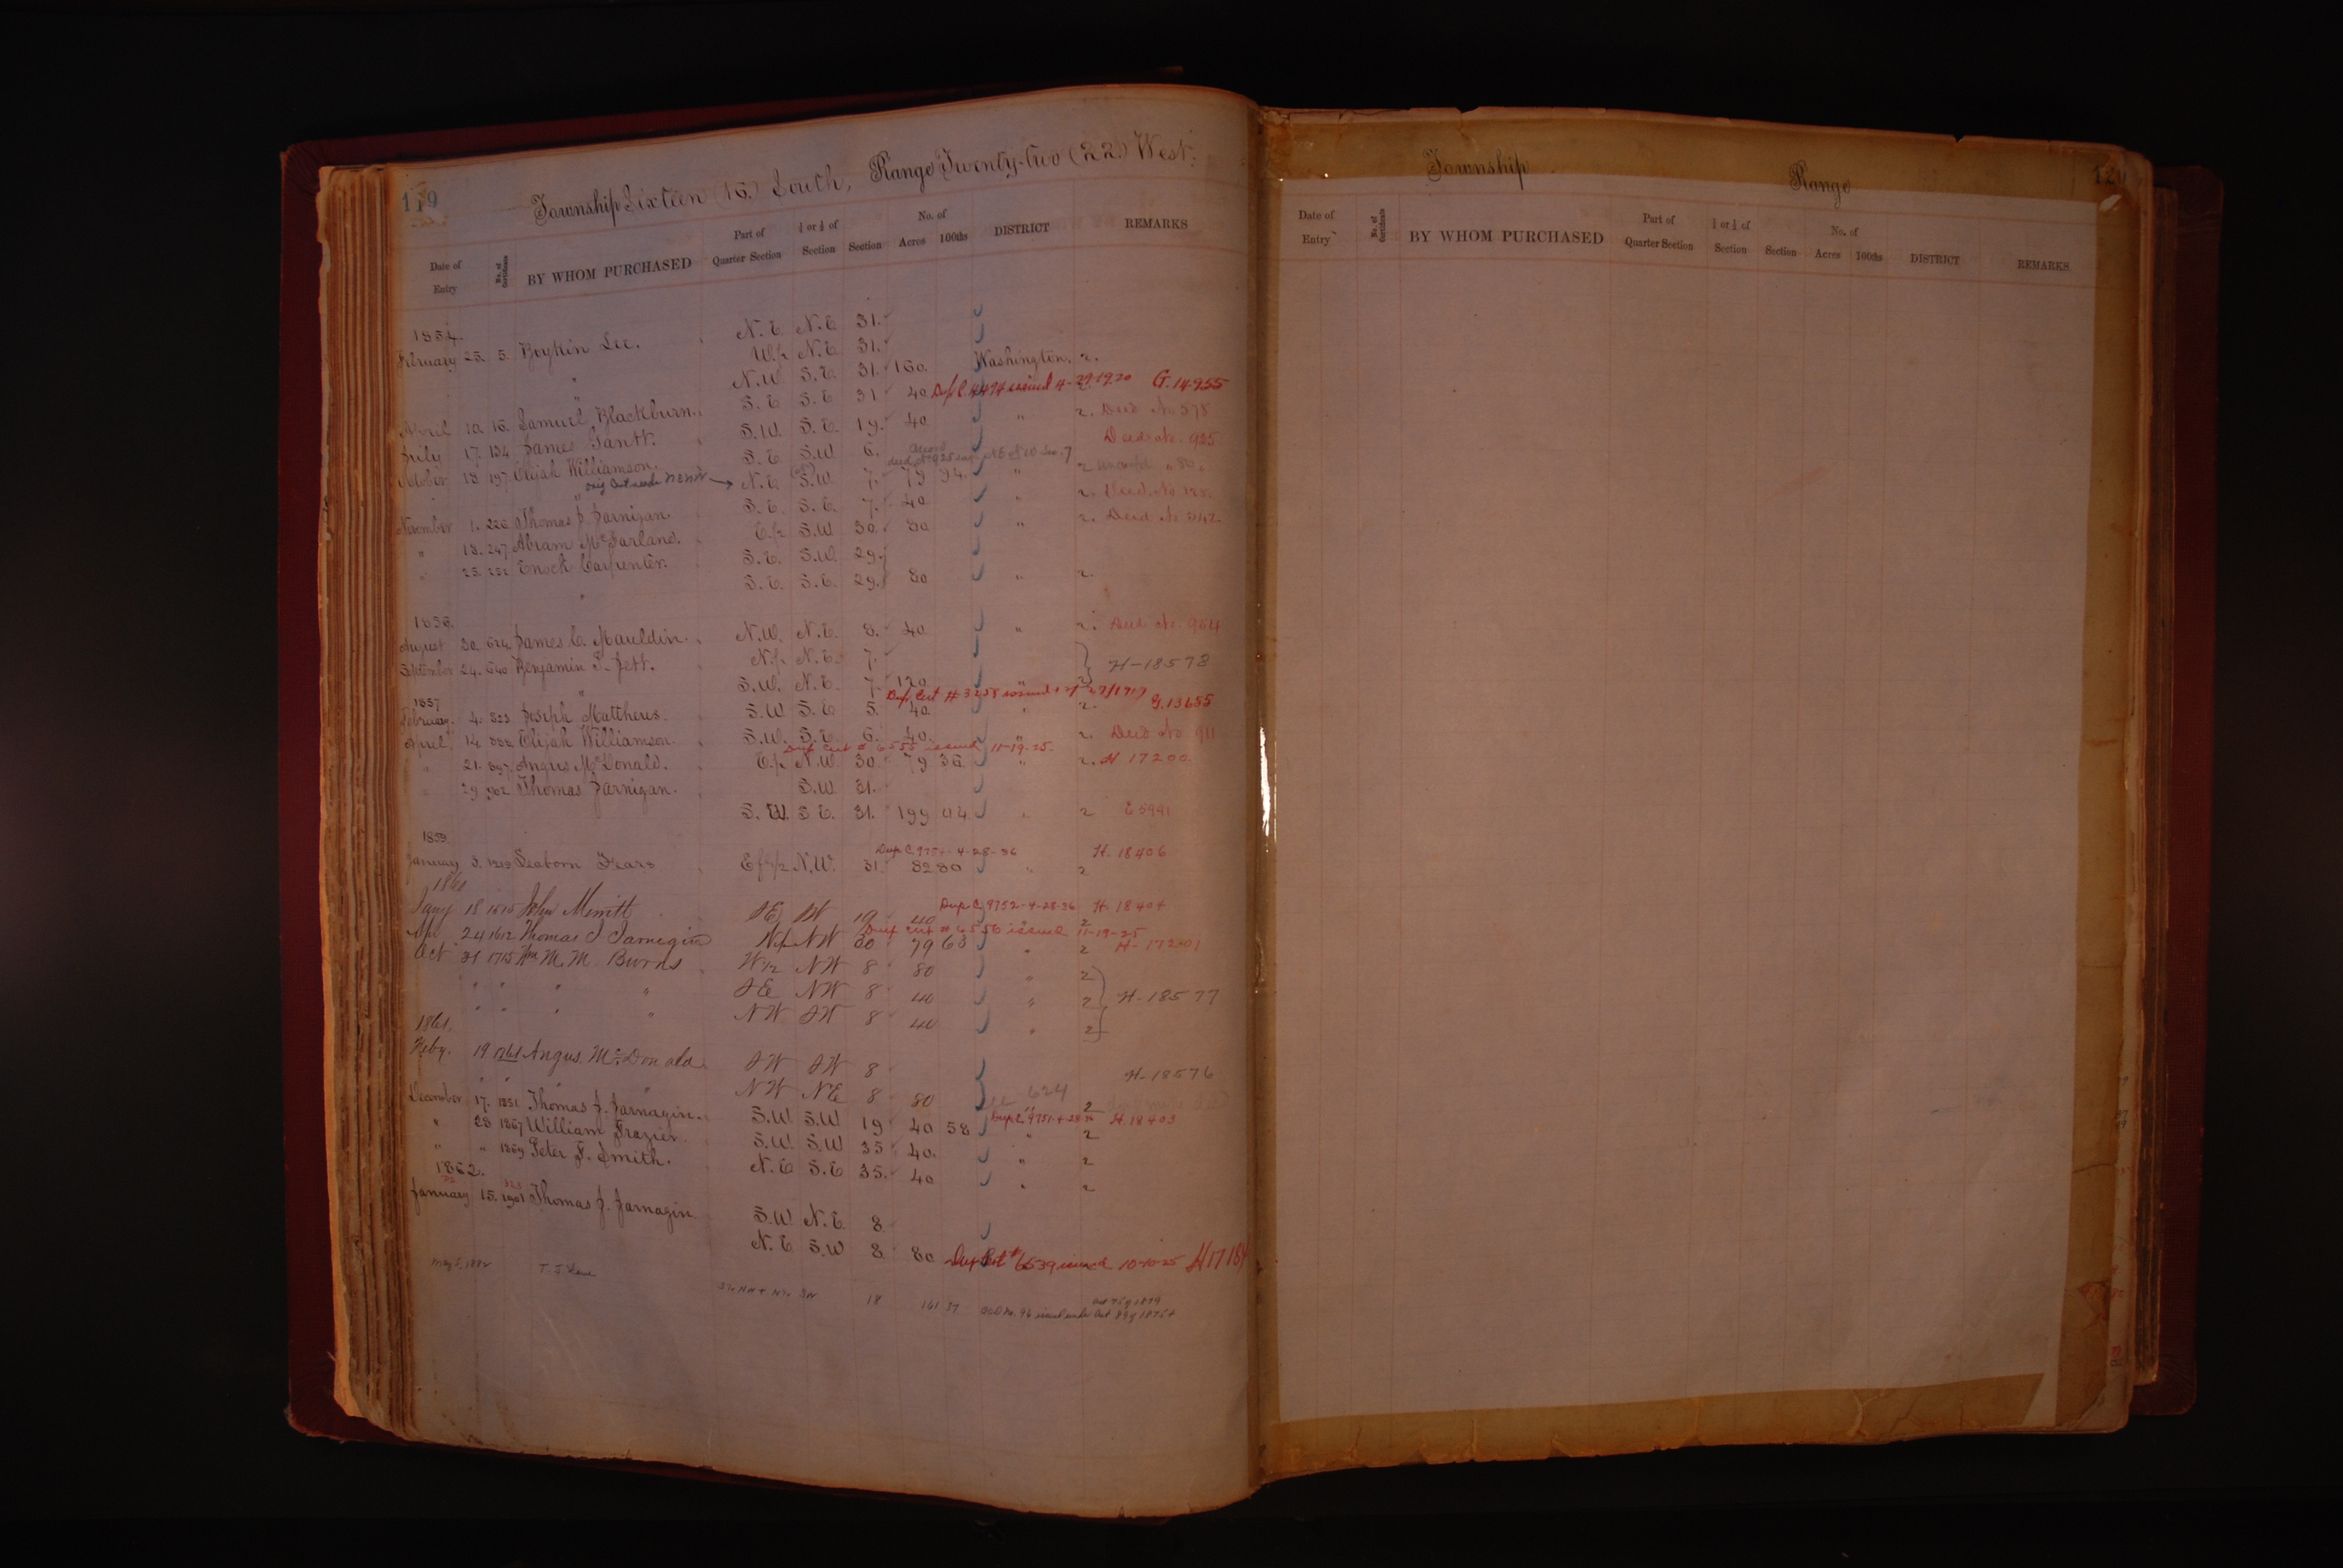 119
Township Sixteen (16.) South, Range Twenty-two (22.) West.
Date of Entry No. of Certificate BY WHOM PURCHASED Part of Quarter Section ½ or ¼ of Section Section No. of Acres 100ths DISTRICT REMARKS
1854.
February 25. 5. Boykin Lee. N.E. N.E. 31.
" W.½ N.E. 31.
" N.W. S.E. 31. 160. Washington. 2.
April 10. 16. Samuel Blackburn. S.E. S.E. 31 40 Dup C. 4494 issued 4-29-1920 G. 14955
July 17. 134 James Gantt. S.W. S.E. 19. 40 " 2. Deed No 578
October 18 197. Elijah Williamson. S.E. S.W. 6. Deed No. 925
orig Cert reads NENW → N.E. S.W. 7. 79 94. " 2
November 1. 226 Thomas J. Jarnigan. S.E. S.E. 7. 40 " 2. Deed No
" 18. 247. Abram McFarland. E.½ S.W. 30. 80 " 2. Deed No 3142
" 25. 252 Enoch Carpenter. S.E. S.W. 29.
" S.E. S.E. 29. 80 " 2.
1856.
August 30. 624. James C. Mauldin. N.W. N.E. 8. 40 " 2. Deed No. 954
September 24. 640 Benjamin T. Jett. N.½ N.E. 7.
" S.W. N.E. 7. 120 " 2 H-18578
1857
February. 4. 823 Joseph Matthews. S.W. S.E. 5. 40 Dup. Cert # 3258 issued G.13655
April 14. 888. Elijah Williamson. S.W. S.E. 6. 40. " 2. Deed No 911
" 21. 897. Angus McDonald. E.½ N.W. 30. 79 36 Dup Cert # 6555 issued 11-19-25. " 2. H 17200
" 29 902 Thomas Jarnigan. S.W. 31.
S.W. S.E. 31. 199 04 " 2 E 5991
1859.
January 3. 1219 Seaborn Fears E fr ½ N.W. 31. 82 80 Dup C. 9754 - 4-28-36 " 2 H-18406
1860
Jany 18 1515 John Merritt SE SW 19 40 Dup C. 9752-4-28-36 2 H-18404
Apr 24 1612 Thomas J Jarnegin W½ NW 30 79 63 Dup Cert # 6556 issued 11-19-25 " 2 H-17201
Oct 31 1715 Wm M. M. Burns W½ NW 8 80 " 2
" " " " SE NW 8 40 " 2 H-18577
" " " " NW SW 8 40 " 2
1861.
Feby. 19 1761 Angus McDonald SW SW 8
" " " " NW NE 8 80 624 2 H-18576
December 17. 1851 Thomas J. Jarnagin. S.W. S.W 19 40 58 Dup C. 9751-4-28-36 " 2 H.18403
" 28 1867 William Frazier. S.W. S.W 35 40. " 2
" " 1869 Peter F. Smith. N.E S.E 35. 40 " 2
1862.
January 15. 1901 Thomas J. Jarnagin. S.W. N.E. 8.
N.E S.W 8 80 Dup Cert # 6539 issued 10-10-25 H17184
May 5, 1882 T. J. 18 161 37 Deed No. 96 issued under Act 89 of 1875+
Act 75 of 1879
Township Range
Date of Entry No. of Certificate BY WHOM PURCHASED Part of Quarter Section ½ or ¼ of Section Section No. of Acres 100ths DISTRICT REMARKS